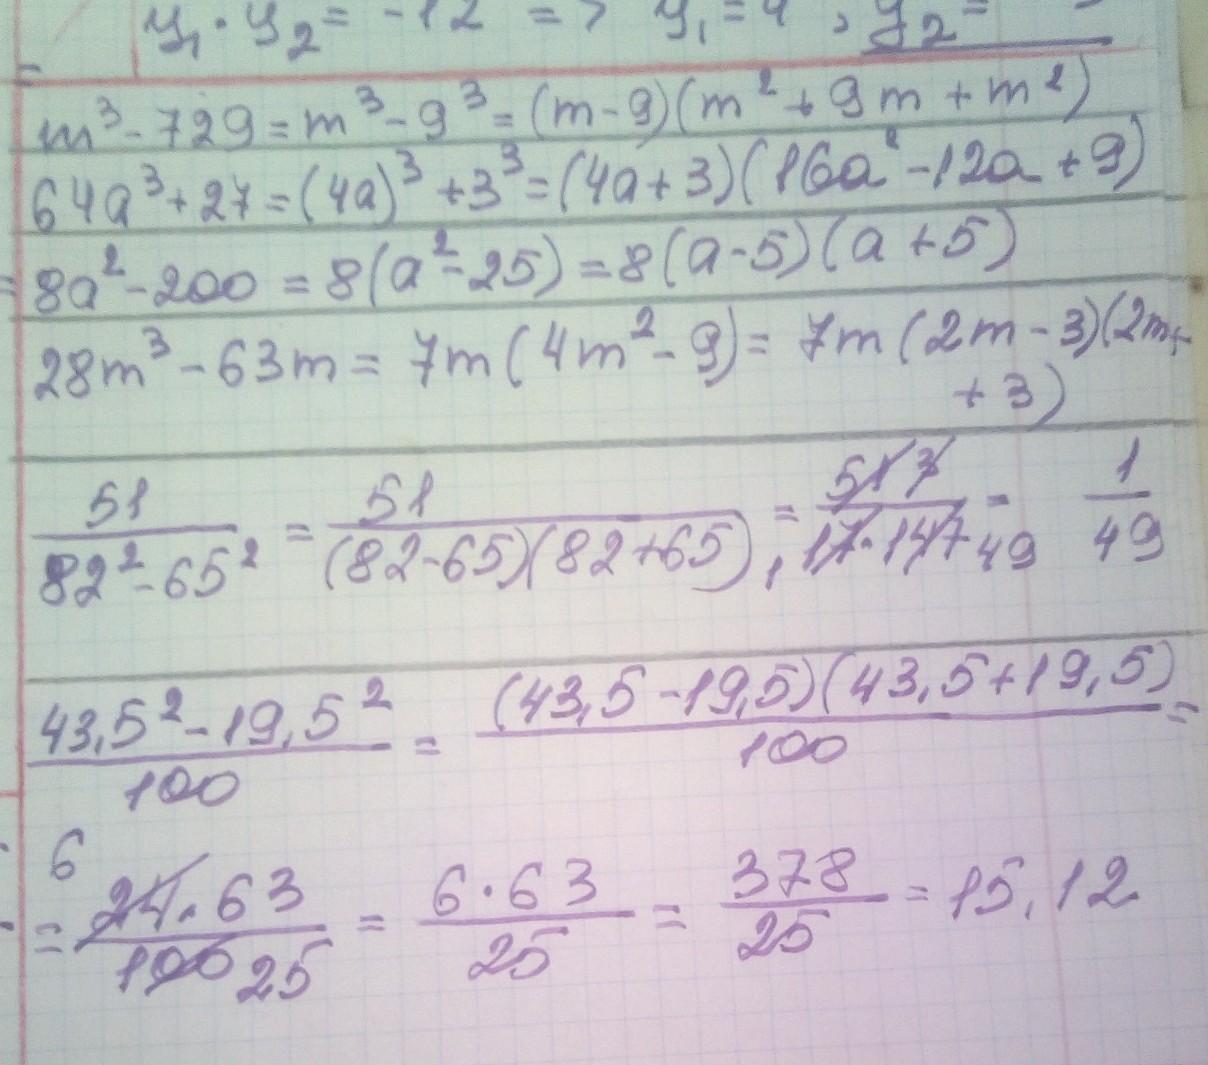 y₁ · y₂ = -12 => y₁ = 4, y₂ =
m³ - 729 = m³ - 9³ = (m - 9)(m² + 9m + m²)
64a³ + 27 = (4a)³ + 3³ = (4a + 3)(16a² - 12a + 9)
= 8a² - 200 = 8(a² - 25) = 8(a - 5)(a + 5)
28m³ - 63m = 7m(4m² - 9) = 7m(2m - 3)(2m +
+ 3)
51 / (82² - 65²) = 51 / ((82 - 65)(82 + 65)) = 51 3 / (17 · 147 49) = 1 / 49
(43,5² - 19,5²) / 100 = ((43,5 - 19,5)(43,5 + 19,5)) / 100 =
= 6 24 · 63 / 100 25 = 6 · 63 / 25 = 378 / 25 = 15,12